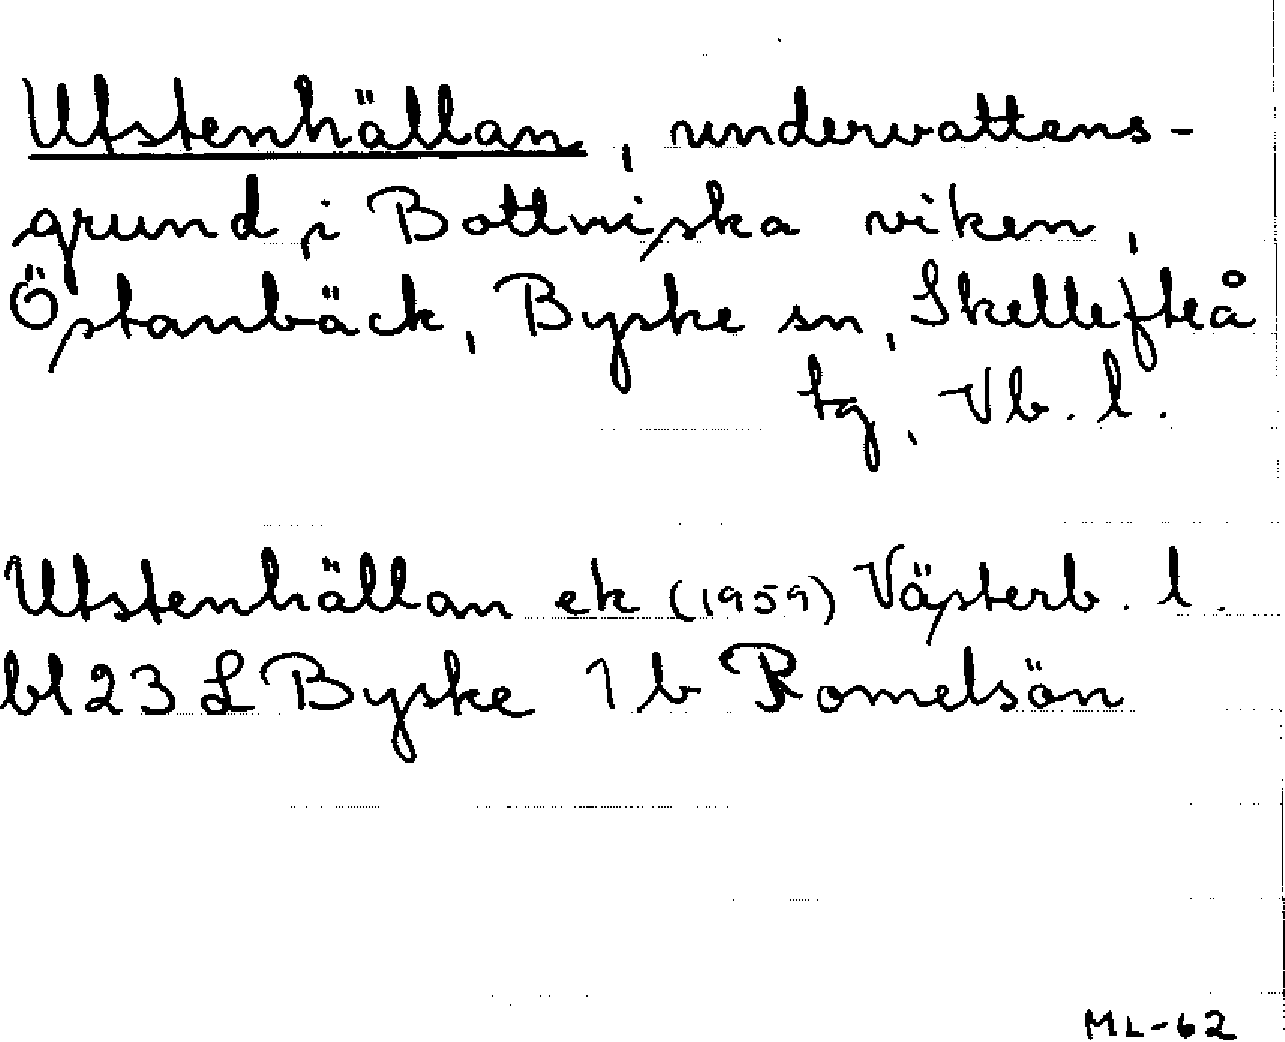 Utstenhällan, undervattens-
grund i Bottniska viken,
Östanbäck, Byske sn, Skellefteå
tg, Vb. l.
Utstenhällan ek (1959) Västerb. l.
bl 23 L Byske 1 b Romelsön
ML-62